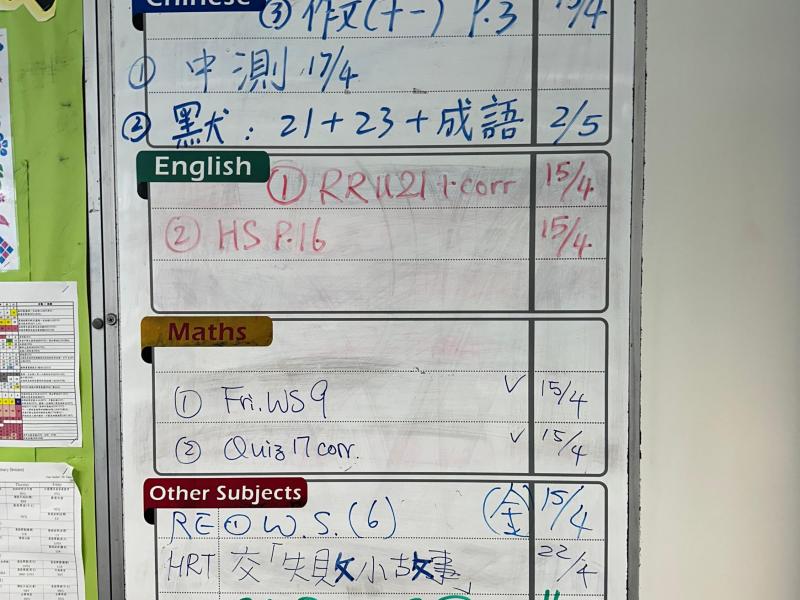 Chinese
③ 作文(十一) P.3 15/4
① 中測 17/4
② 默: 21+23+成語 2/5
English
① RRU21+corr 15/4
② HS P.16 15/4
Maths
① Fri.WS 9 ✓ 15/4
② Quiz 17 corr. ✓ 15/4
Other Subjects
RE ① W.S.(6) (金) 15/4
HRT 交「失敗小故事」 22/4